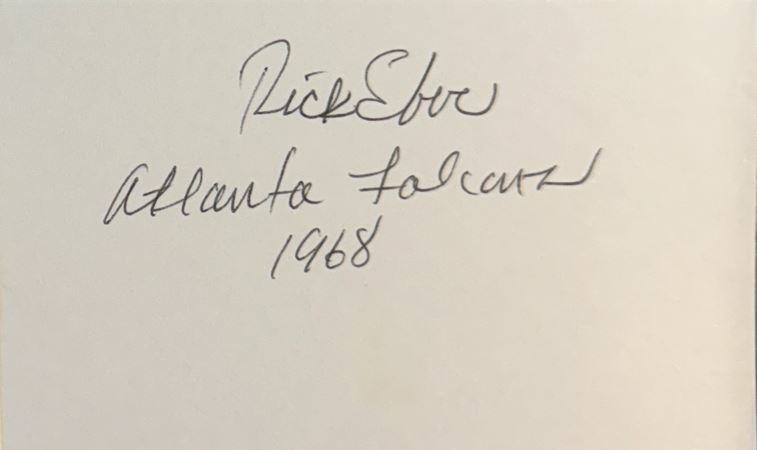 Rick Eber
Atlanta Falcons
1968